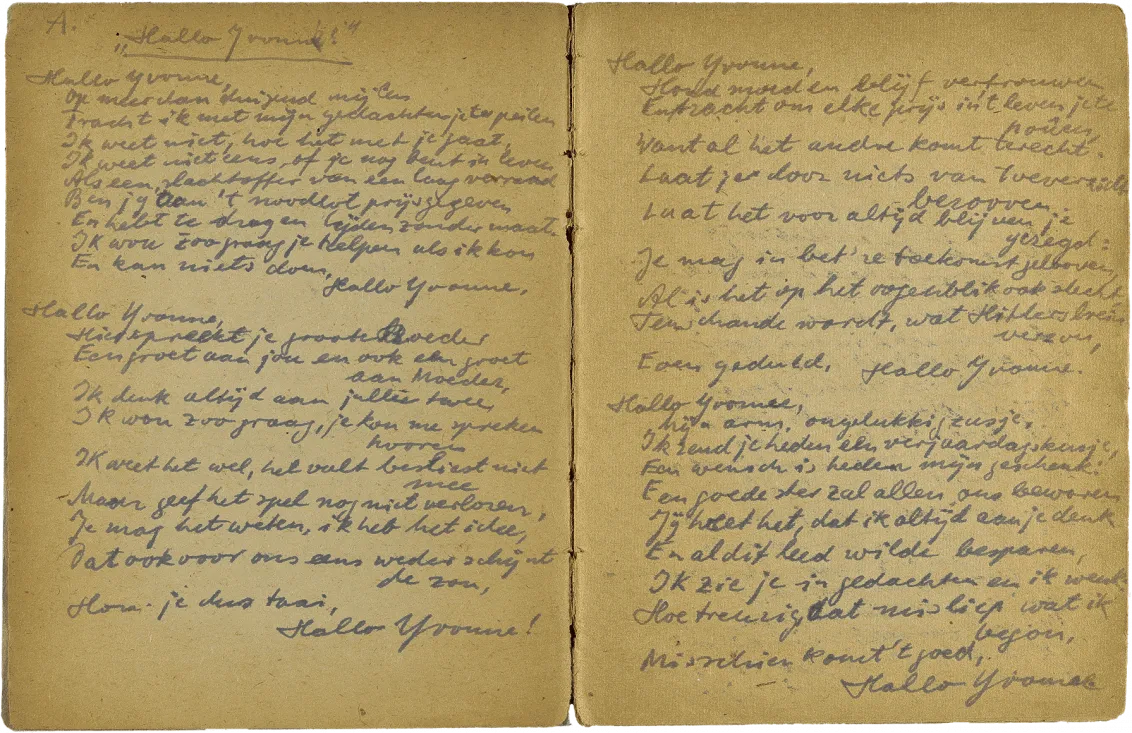 A.
„Hallo Yvonne!"
Hallo Yvonne,
Op meer dan duizend mijlen
Tracht ik met mijn gedachten je te peilen
Ik weet niet, hoe het met je gaat,
Ik weet niet eens, of je nog bent in leven
Als een slachtoffer van een laag verraad
Ben jy aan 't noodlot prijsgegeven
En hebt te dragen lijden zonder maat.
Ik wou zoo graag je helpen als ik kon
En kan niets doen,
Hallo Yvonne,
Hallo Yvonne,
Hier spreekt je groote Broeder
Een groet aan jou en ook een groet
aan Moeder,
Ik denk altijd aan jullie twee,
Ik wou zoo graag, je kon me spreken
hooren
Ik weet het wel, het valt beslist niet
mee
Maar geef het spel nog niet verloren,
Je mag het weten, ik heb het idee,
Dat ook voor ons eens weder schijnt
de zon,
Hou je dus taai,
Hallo Yvonne!
Hallo Yvonne,
Houd moed en blijf vertrouwen
En tracht om elke prijs in 't leven je te
Want al het andre komt terecht.
Laat je door niets van toeverzicht
berooven
Laat het voor altijd blijven je
gezegd:
Je mag in bet're toekomst gelooven,
Al is het op het oogenblik ook slecht
Ten schande wordt, wat Hitlers brein
verzon,
Even geduld, Hallo Yvonne.
Hallo Yvonne,
Mijn arm, ongelukkig zusje,
Ik zend je heden een verjaardagskusje,
Een wensch is heden mijn geschenk:
Een goede ster zal allen ons bewaren
Jij weet het, dat ik altijd aan je denk
En al dit leed wilde besparen,
Ik zie je in gedachten en ik wenk
Hoe treurig dat misliep wat ik
begon,
Misschien komt 't goed,
Hallo Yvonne